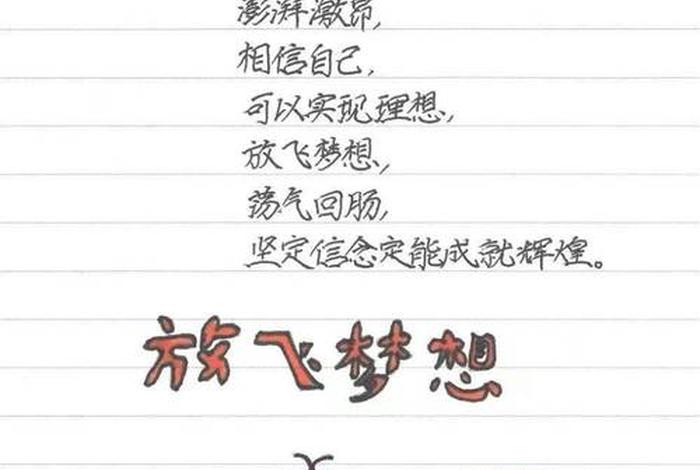 澎湃激昂,
相信自己,
可以实现理想,
放飞梦想,
荡气回肠,
坚定信念定能成就辉煌。
放飞梦想